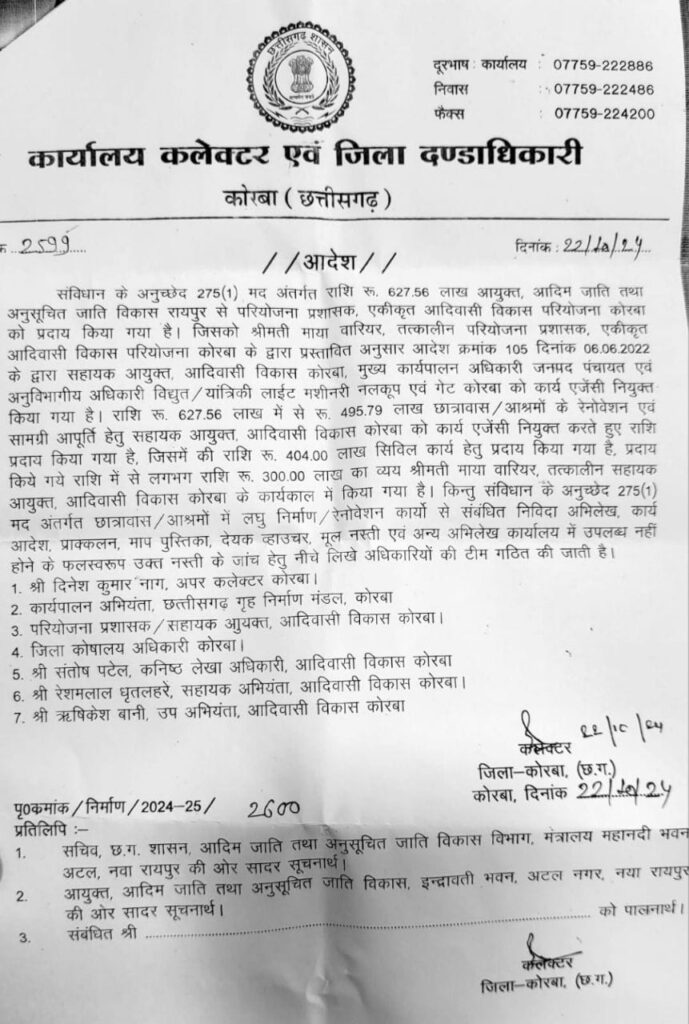 छत्तीसगढ़ शासन
दूरभाष: कार्यालय : 07759-222886
निवास : 07759-222486
फैक्स : 07759-224200
कार्यालय कलेक्टर एवं जिला दण्डाधिकारी
कोरबा ( छत्तीसगढ़ )
क 2599
दिनांक: 22/10/24
//आदेश//
संविधान के अनुच्छेद 275(1) मद अंतर्गत राशि रू. 627.56 लाख आयुक्त, आदिम जाति तथा
अनुसूचित जाति विकास रायपुर से परियोजना प्रशासक, एकीकृत आदिवासी विकास परियोजना कोरबा
को प्रदाय किया गया है। जिसको श्रीमती माया वारियर, तत्कालीन परियोजना प्रशासक, एकीकृत
आदिवासी विकास परियोजना कोरबा के द्वारा प्रस्तावित अनुसार आदेश क्रमांक 105 दिनांक 06.06.2022
के द्वारा सहायक आयुक्त, आदिवासी विकास कोरबा, मुख्य कार्यपालन अधिकारी जनपद पंचायत एवं
अनुविभागीय अधिकारी विद्युत/यांत्रिकी लाईट मशीनरी नलकूप एवं गेट कोरबा को कार्य एजेंसी नियुक्त
किया गया है। राशि रू. 627.56 लाख में से रू. 495.79 लाख छात्रावास/आश्रमों के रेनोवेशन एवं
सामग्री आपूर्ति हेतु सहायक आयुक्त, आदिवासी विकास कोरबा को कार्य एजेंसी नियुक्त करते हुए राशि
प्रदाय किया गया है, जिसमें की राशि रू. 404.00 लाख सिविल कार्य हेतु प्रदाय किया गया है, प्रदाय
किये गये राशि में से लगभग राशि रू. 300.00 लाख का व्यय श्रीमती माया वारियर, तत्कालीन सहायक
आयुक्त, आदिवासी विकास कोरबा के कार्यकाल में किया गया है। किन्तु संविधान के अनुच्छेद 275(1)
मद अंतर्गत छात्रावास/आश्रमों में लघु निर्माण/रेनोवेशन कार्यो से संबंधित निविदा अभिलेख, कार्य
आदेश, प्राक्कलन, माप पुस्तिका, देयक व्हाउचर, मूल नस्ती एवं अन्य अभिलेख कार्यालय में उपलब्ध नहीं
होने के फलस्वरूप उक्त नस्ती के जांच हेतु नीचे लिखे अधिकारियों की टीम गठित की जाती है।
1. श्री दिनेश कुमार नाग, अपर कलेक्टर कोरबा।
2. कार्यपालन अभियंता, छत्तीसगढ़ गृह निर्माण मंडल, कोरबा
3. परियोजना प्रशासक/सहायक आुयक्त, आदिवासी विकास कोरबा।
4. जिला कोषालय अधिकारी कोरबा।
5. श्री संतोष पटेल, कनिष्ठ लेखा अधिकारी, आदिवासी विकास कोरबा
6. श्री रेशमलाल धृतलहरे, सहायक अभियंता, आदिवासी विकास कोरबा।
7. श्री ऋषिकेश बानी, उप अभियंता, आदिवासी विकास कोरबा
22/10/24
कलेक्टर
जिला-कोरबा, (छ.ग.)
कोरबा, दिनांक 22/10/24
पृ0कमांक/निर्माण/2024-25/ 2600
प्रतिलिपि :-
1. सचिव, छ.ग. शासन, आदिम जाति तथा अनुसूचित जाति विकास विभाग, मंत्रालय महानदी भवन
अटल, नवा रायपुर की ओर सादर सूचनार्थ।
2. आयुक्त, आदिम जाति तथा अनुसूचित जाति विकास, इन्द्रावती भवन, अटल नगर, नया रायपुर
की ओर सादर सूचनार्थ।
3. संबंधित श्री .......... को पालनार्थ।
कलेक्टर
जिला-कोरबा, (छ.ग.)